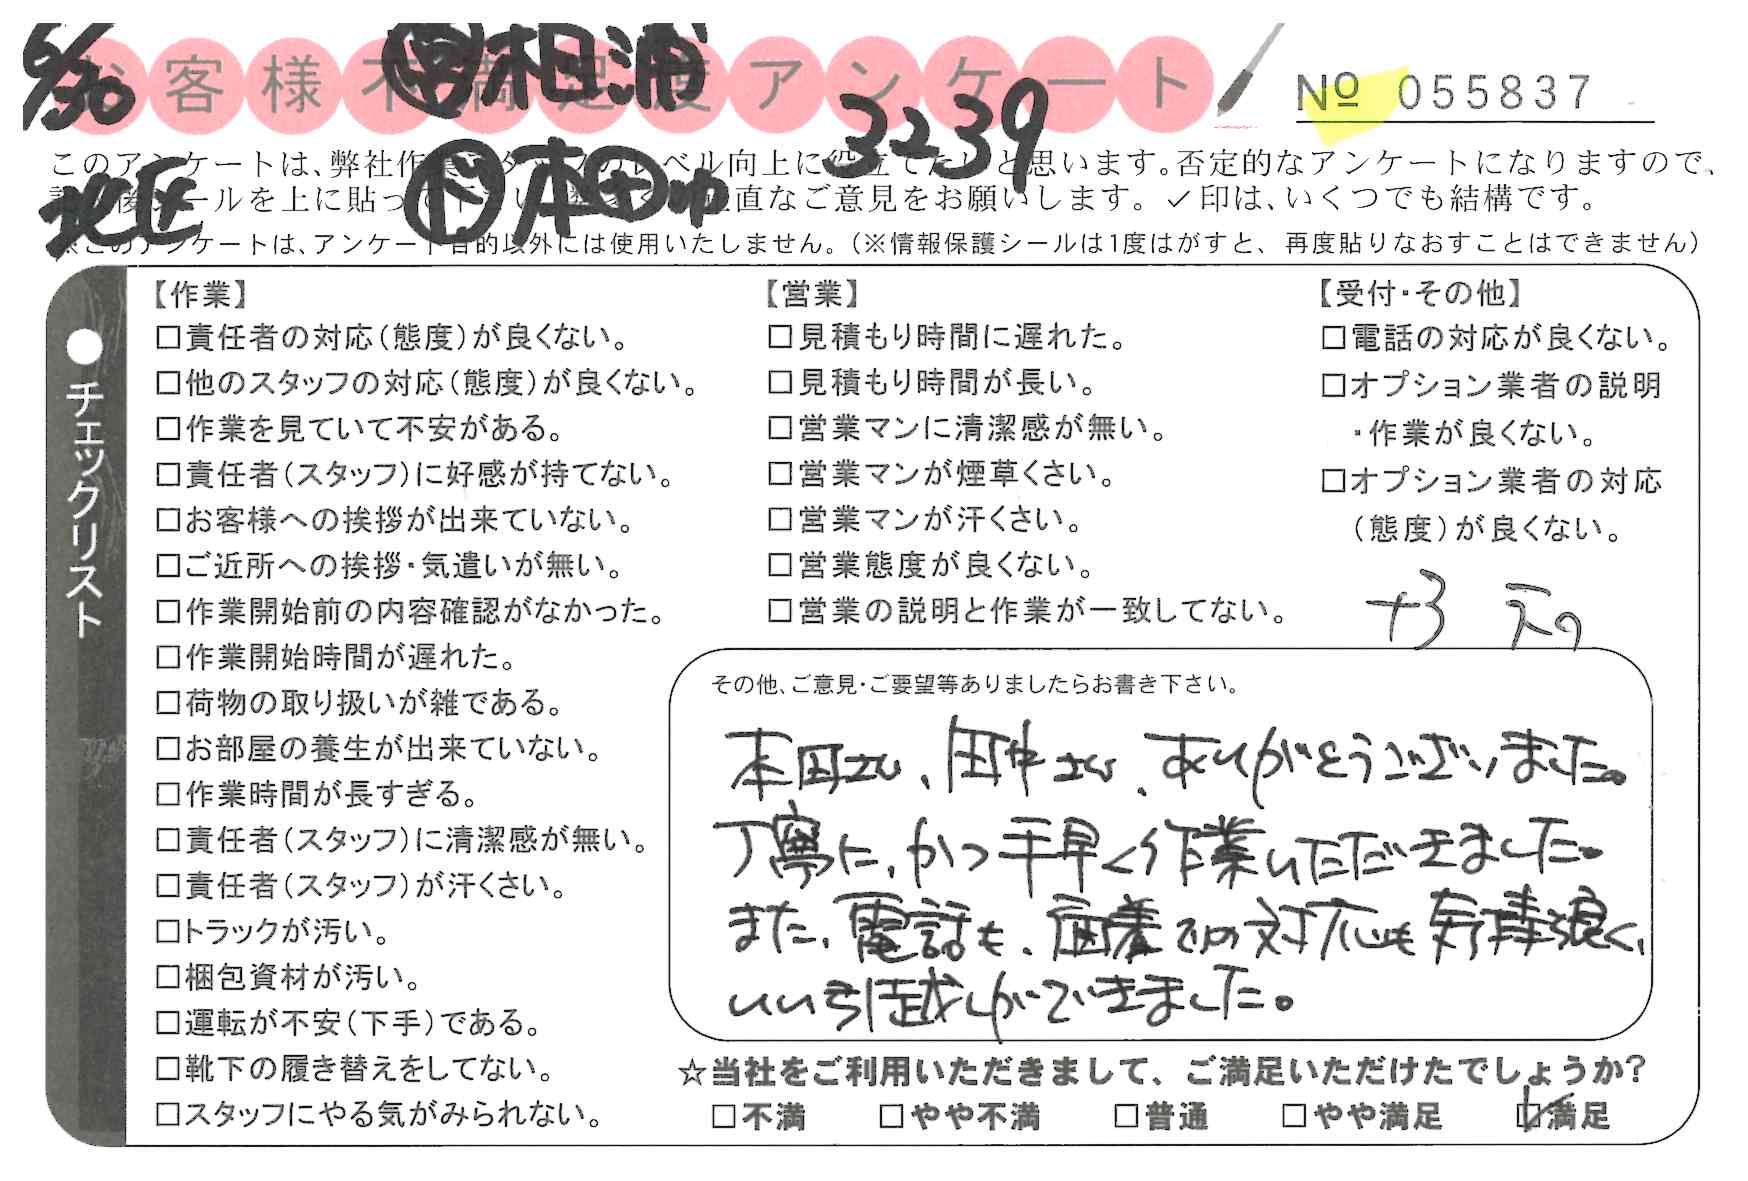 6/30
お客様不満足度アンケート
相浦
3239
№ 055837
地区
本田中
このアンケートは、弊社作業スタッフのレベル向上に役立てたいと思います。否定的なアンケートになりますので、
ルを上に貼って下さい 直なご意見をお願いします。✓印は、いくつでも結構です。
※このアンケートは、アンケート目的以外には使用いたしません。(※情報保護シールは1度はがすと、再度貼りなおすことはできません)
●チェックリスト
【作業】
□責任者の対応(態度)が良くない。
□他のスタッフの対応(態度)が良くない。
□作業を見ていて不安がある。
□責任者(スタッフ)に好感が持てない。
□お客様への挨拶が出来ていない。
□ご近所への挨拶・気遣いが無い。
□作業開始前の内容確認がなかった。
□作業開始時間が遅れた。
□荷物の取り扱いが雑である。
□お部屋の養生が出来ていない。
□作業時間が長すぎる。
□責任者(スタッフ)に清潔感が無い。
□責任者(スタッフ)が汗くさい。
□トラックが汚い。
□梱包資材が汚い。
□運転が不安(下手)である。
□靴下の履き替えをしてない。
□スタッフにやる気がみられない。
【営業】
□見積もり時間に遅れた。
□見積もり時間が長い。
□営業マンに清潔感が無い。
□営業マンが煙草くさい。
□営業マンが汗くさい。
□営業態度が良くない。
□営業の説明と作業が一致してない。
【受付・その他】
□電話の対応が良くない。
□オプション業者の説明
・作業が良くない。
□オプション業者の対応
(態度)が良くない。
その他、ご意見・ご要望等ありましたらお書き下さい。
本田さん、田中さん、ありがとうございました。
丁寧に、かつ手早く作業いただきました。
また、電話も、到着での対応も気持良く、
いい引越しができました。
☆当社をご利用いただきまして、ご満足いただけたでしょうか?
□不満 □やや不満 □普通 □やや満足 ☑満足